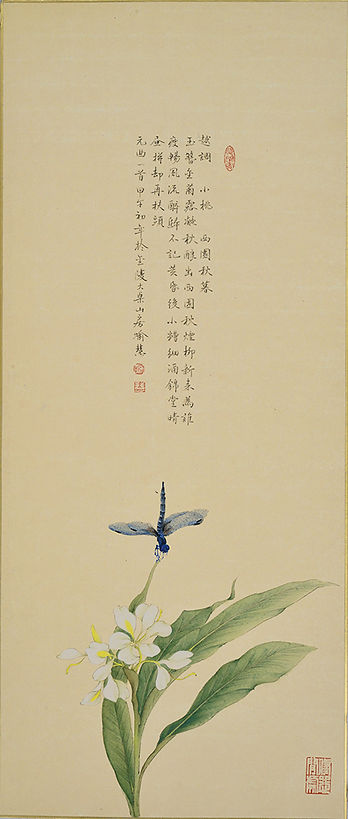 越調 小桃 西園秋暮
玉簪金菊露凝秋釀出西園秋煙柳新來為誰
瘦暢風流醉歸不記黃昏後小糟細酒錦堂晴
晝拼却再扶頭
元曲一首甲午初年於金陵大桌山房喻慧